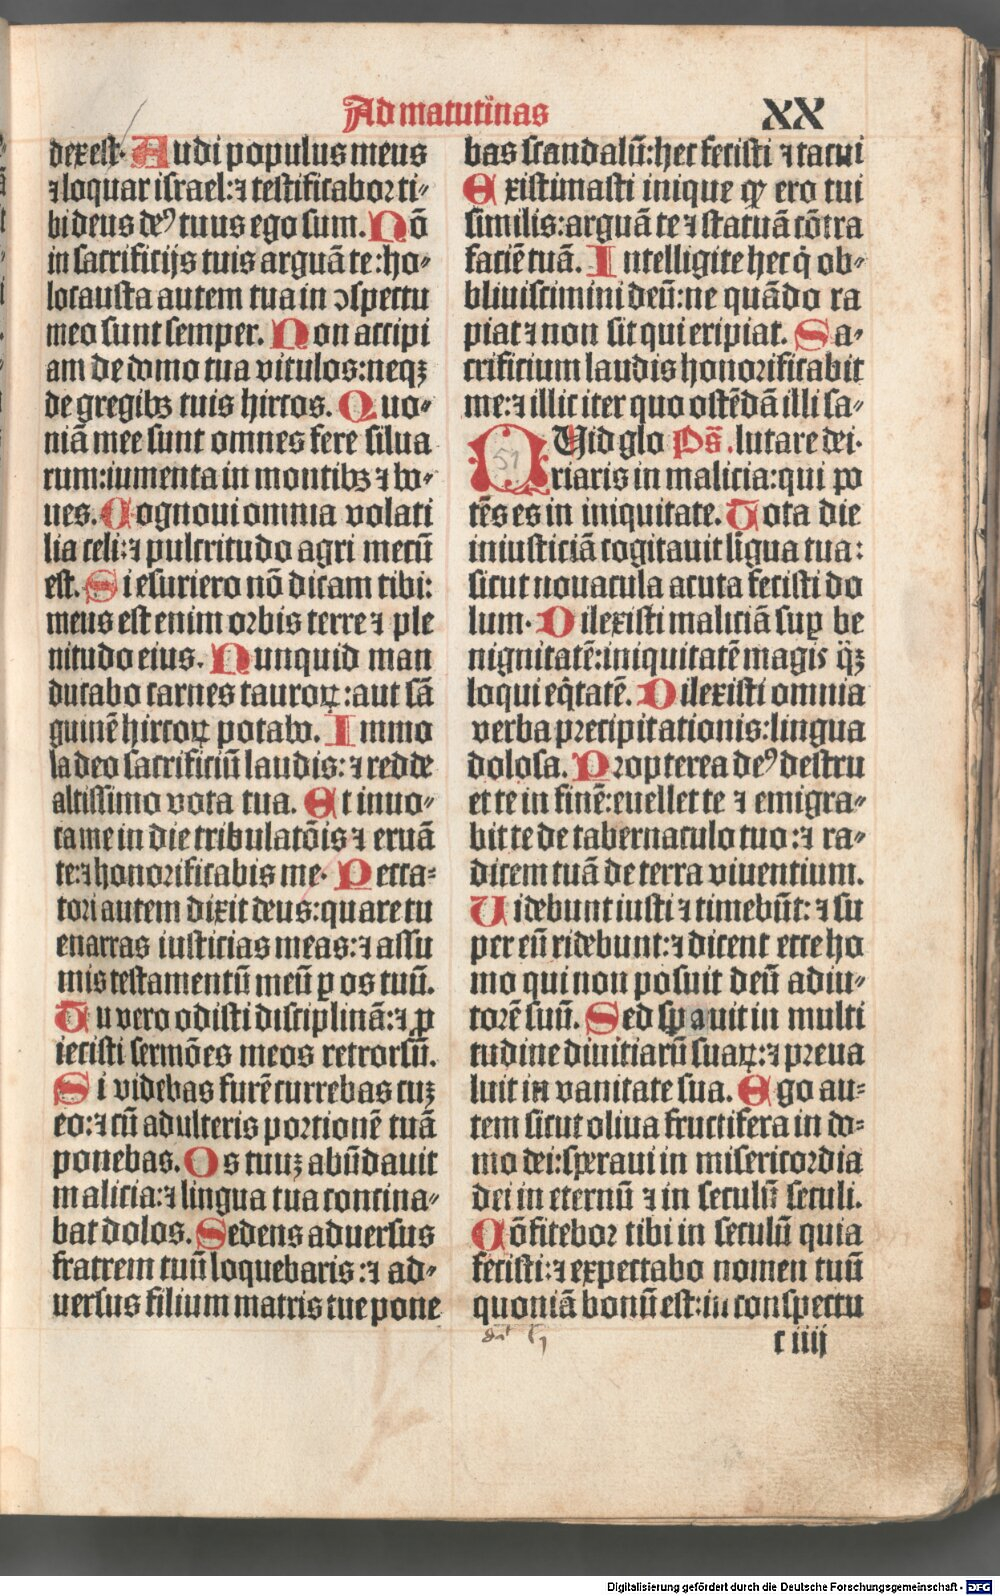 Ad matutinas
XX
dex est. Audi populus meus
⁊ loquar israel: ⁊ testificabor ti⸗
bi deus deꝰ tuus ego sum. Nō
in sacrificijs tuis arguā te: ho⸗
locausta autem tua in ↄspectu
meo sunt semper. Non accipi
am de domo tua vitulos: neqꝫ
de gregibꝫ tuis hircos. Quo⸗
niā mee sunt omnes fere silua
rum: iumenta in montibꝫ ⁊ bo⸗
ues. Cognoui omnia volati
lia celi: ⁊ pulcritudo agri mecū
est. Si esuriero nō dicam tibi:
meus est enim orbis terre ⁊ ple
nitudo eius. Nunquid man
ducabo carnes tauroꝝ: aut sā
guinē hircoꝝ potabo. Immo
la deo sacrificiū laudis: ⁊ redde
altissimo vota tua. Et inuo⸗
ca me in die tribulatōis ⁊ eruā
te: ⁊ honorificabis me. Pecca⸗
tori autem dixit deus: quare tu
enarras iusticias meas: ⁊ assu
mis testamentū meū ꝑ os tuū.
Tu vero odisti disciplinā: ⁊ ꝓ
iecisti sermōes meos retrorsū.
Si videbas furē currebas cuꝫ
eo: ⁊ cū adulteris portionē tuā
ponebas. Os tuuꝫ abūdauit
malicia: ⁊ lingua tua concina⸗
bat dolos. Sedens aduersus
fratrem tuū loquebaris: ⁊ ad⸗
uersus filium matris tue pone
bas scandalū: hec fecisti ⁊ tacui
Existimasti inique ꝙ ero tui
similis: arguā te ⁊ statuā cōtra
faciē tuā. Intelligite hec q̇ ob⸗
bliuiscimini deū: ne quādo ra
piat ⁊ non sit qui eripiat. Sa⸗
crificium laudis honorificabit
me: ⁊ illic iter quo ostēdā illi sa⸗
QUid glo Ps̄. lutare dei.
51
riaris in malicia: qui po
tēs es in iniquitate. Tota die
iniusticiā cogitauit līgua tua:
sicut nouacula acuta fecisti do
lum. Dilexisti maliciā suꝑ be
nignitatē: iniquitatē magis q̈ꝫ
loqui eq̇tatē. Dilexisti omnia
verba precipitationis: lingua
dolosa. Propterea deꝰ destru
et te in finē: euellet te ⁊ emigra⸗
bit te de tabernaculo tuo: ⁊ ra⸗
dicem tuā de terra viuentium.
Uidebunt iusti ⁊ timebūt: ⁊ su
per eū ridebunt: ⁊ dicent ecce ho
mo qui non posuit deū adiu⸗
torē suū. Sed sꝑauit in multi
tudine diuitiarū suaꝝ: ⁊ preua
luit in vanitate sua. Ego au⸗
tem sicut oliua fructifera in do⸗
mo dei: speraui in misericordia
dei in eternū ⁊ in seculū seculi.
Cōfitebor tibi in seculū quia
fecisti: ⁊ expectabo nomen tuū
quoniā bonū est: in conspectu
c iiij
Digitalisierung gefördert durch die Deutsche Forschungsgemeinschaft - DFG